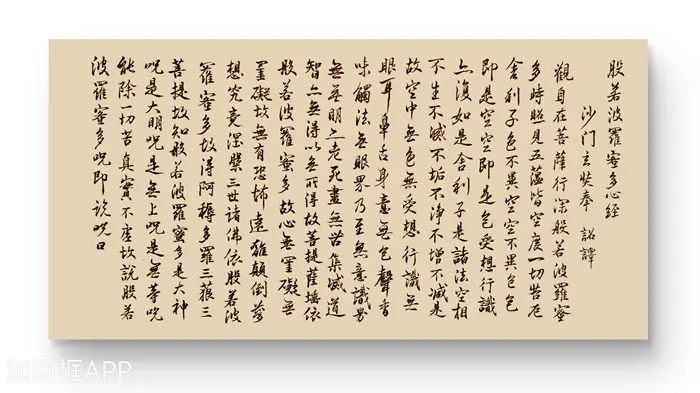 般若波羅蜜多心經
沙门玄奘奉 詔譯
觀自在菩薩行深般若波羅蜜
多時照見五蘊皆空度一切苦厄
舍利子色不異空空不異色色
即是空空即是色受想行識
亦復如是舍利子是諸法空相
不生不滅不垢不淨不增不減是
故空中無色無受想行識無
眼耳鼻舌身意無色聲香
味觸法無眼界乃至無意識界
無無明亦老死盡無苦集滅道
智亦無得以無所得故菩提薩埵依
般若波羅蜜多故心無罣礙無
罣礙故無有恐怖遠離顛倒夢
想究竟涅槃三世諸佛依般若波
羅蜜多故得阿耨多羅三藐三
菩提故知般若波羅蜜多是大神
呪是大明呪是無上呪是無等呪
能除一切苦真實不虛故說般若
波羅蜜多呪即說呪曰
加画框APP